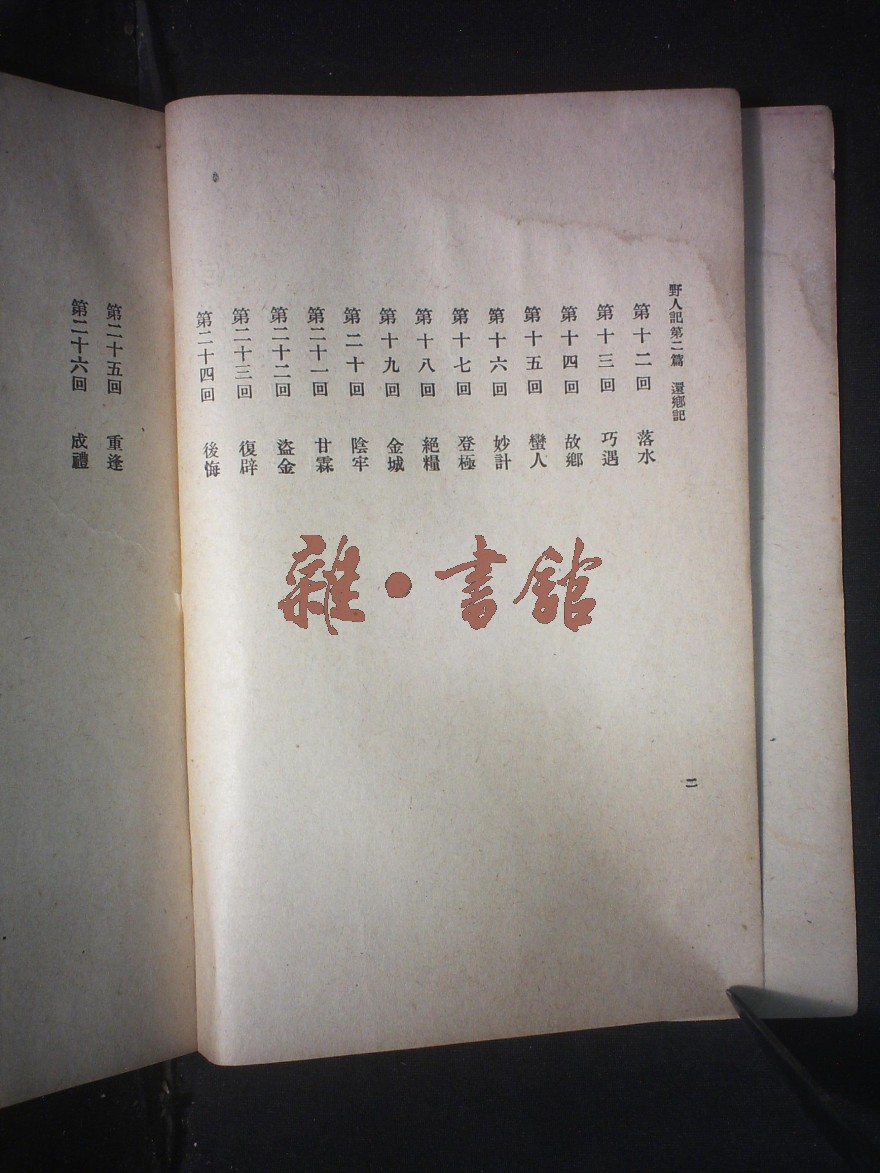 野人記第二篇 還鄉記
第十二回 落水
第十三回 巧遇
第十四回 故鄉
第十五回 蠻人
第十六回 妙計
第十七回 登極
第十八回 絕糧
第十九回 金城
第二十回 陰牢
第二十一回 甘霖
第二十二回 盜金
第二十三回 復辟
第二十四回 後悔
二
第二十五回 重逢
第二十六回 成禮
雜·書館